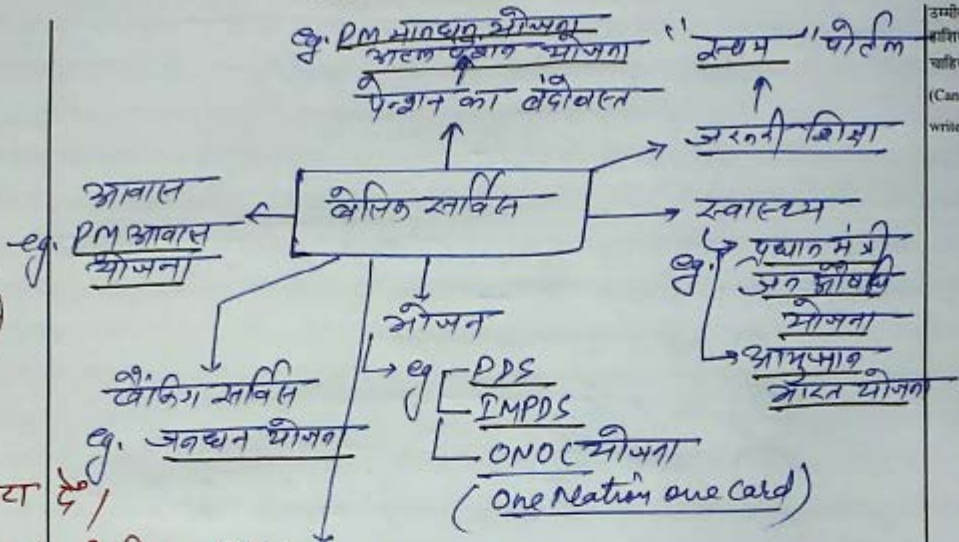 eg. PM मानधन योजना
अटल पेंशन योजना
पेन्शन का बंदोबस्त
"स्वयम" पोर्टल
जरूरी शिक्षा
बेसिक सर्विस
आवास
eg. PM आवास
योजना
स्वास्थ्य
eg. प्रधान मंत्री
जन औषधि
योजना
आयुष्मान
भारत योजना
भोजन
eg PDS
IMPDS
ONOC योजना
(One Nation one card)
बैंकिग सर्विस
eg. जनधन योजना
दें।
(Can
write